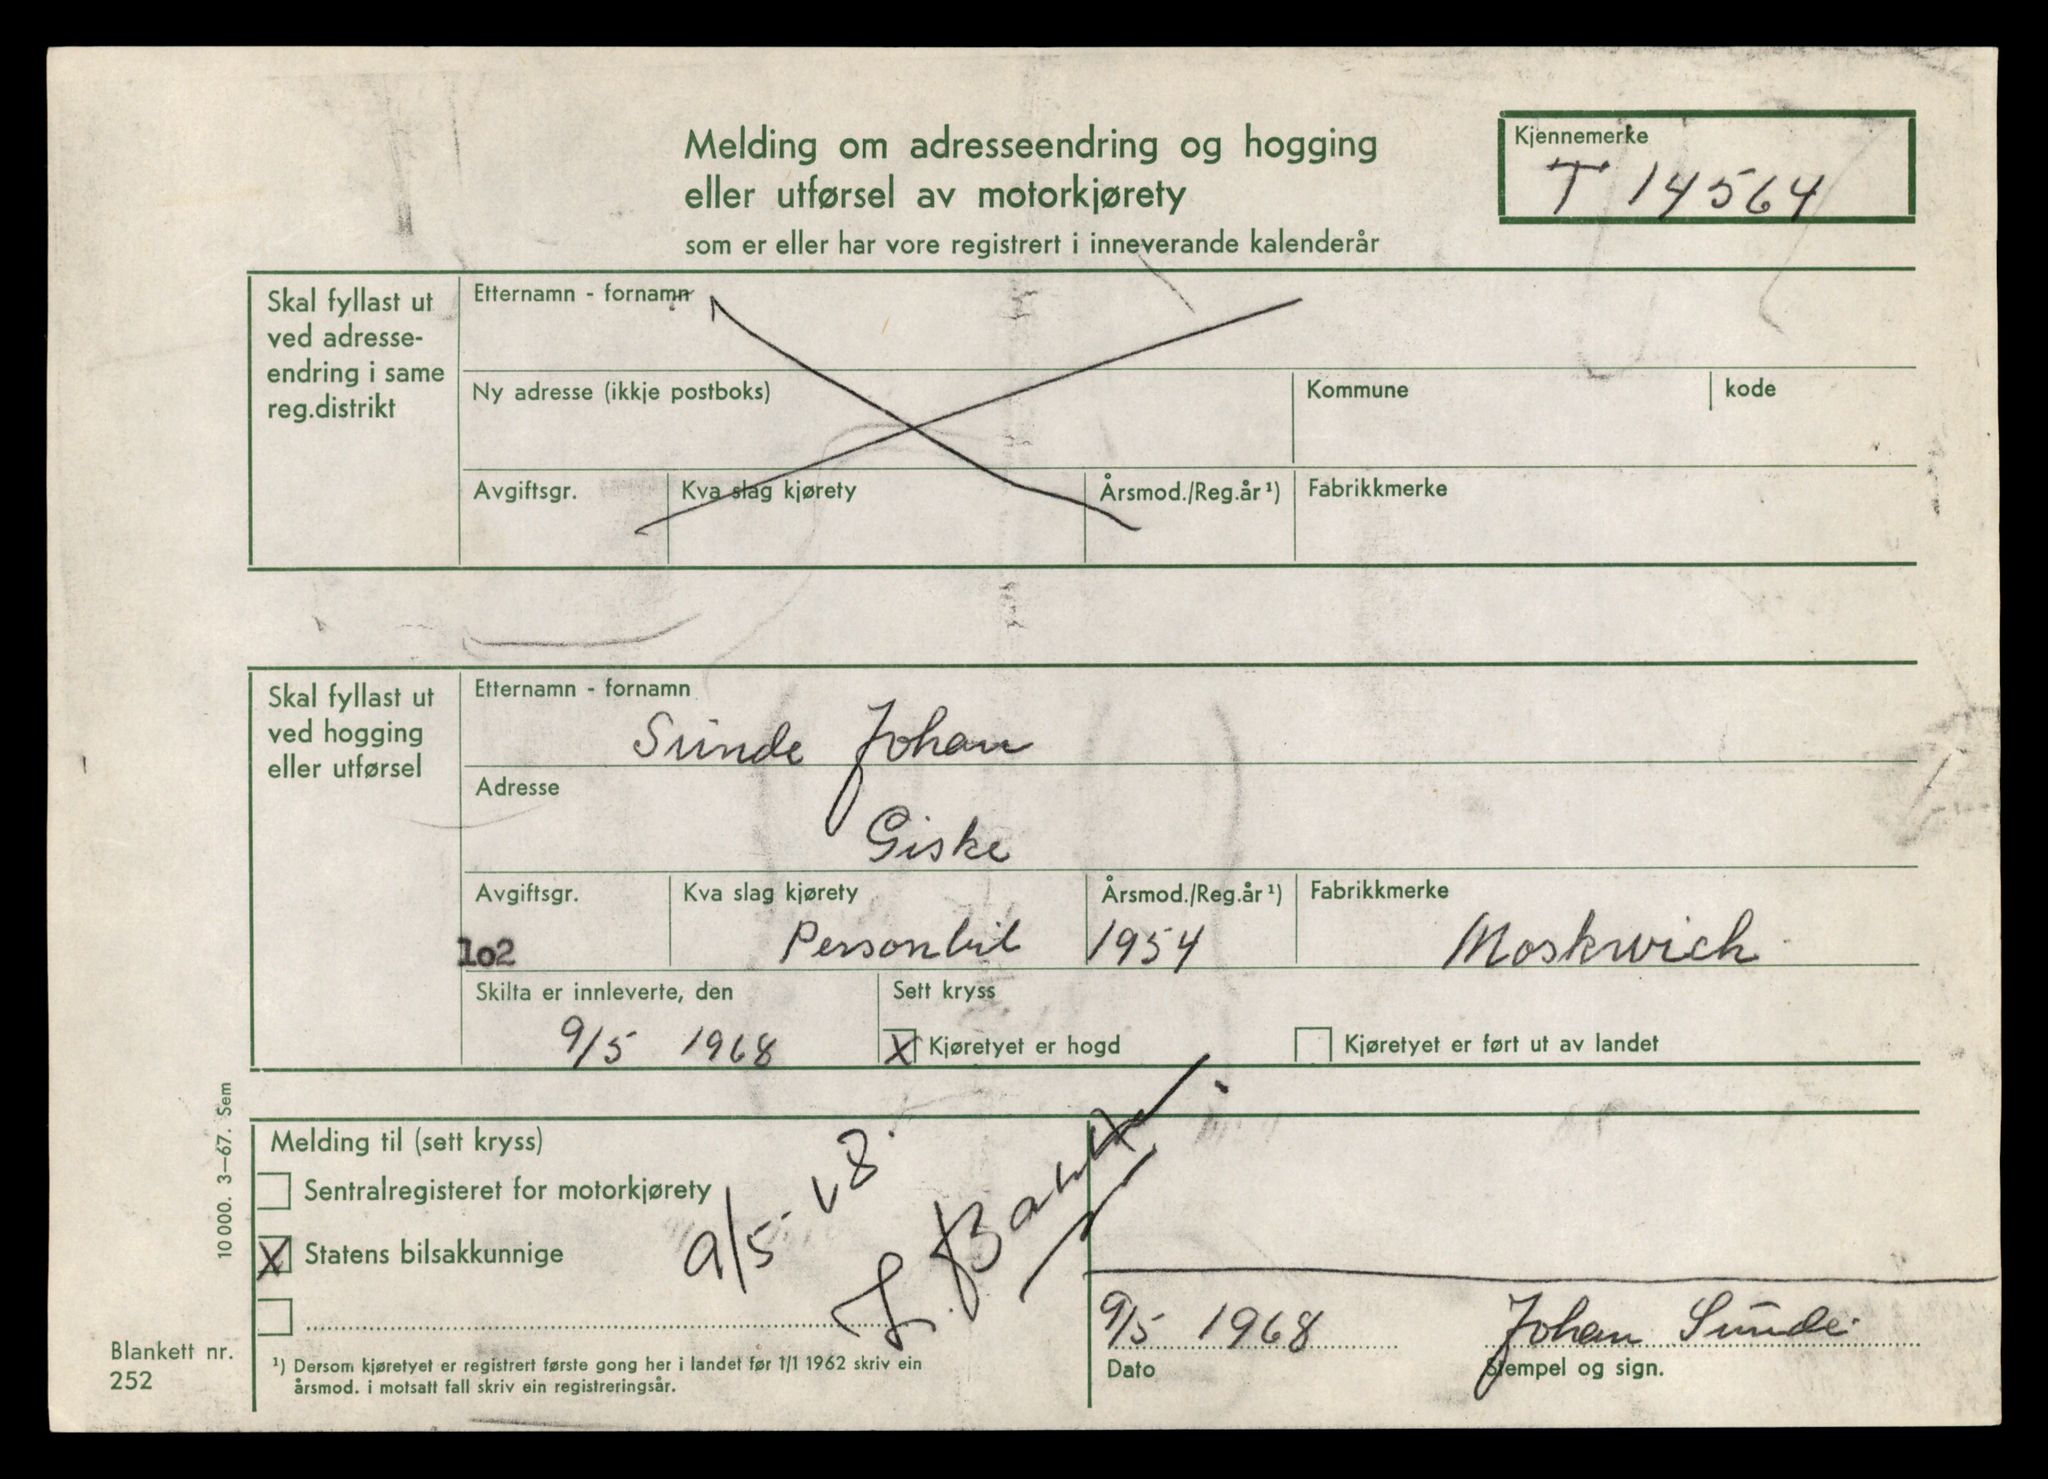 Melding om adresseendring og hogging
eller utførsel av motorkjørety
som er eller har vore registrert i inneverande kalenderår
Kjennemerke
T 14564
Skal fyllast ut
ved adresse-
endring i same
reg.distrikt
Etternamn - fornamn
Ny adresse (ikkje postboks)
Kommune
kode
Avgiftsgr.
Kva slag kjørety
Årsmod./Reg.år¹)
Fabrikkmerke
Skal fyllast ut
ved hogging
eller utførsel
Etternamn - fornamn
Sunde Johan
Adresse
Giske
Avgiftsgr.
lo2
Kva slag kjørety
Personbil
Årsmod./Reg.år¹)
1954
Fabrikkmerke
Moskwich
Skilta er innleverte, den
9/5 1968
Sett kryss
X Kjøretyet er hogd
Kjøretyet er ført ut av landet
Melding til (sett kryss)
Sentralregisteret for motorkjørety
X Statens bilsakkunnige
9/5
9/5 1968
Johan Sunde
Dato
Stempel og sign.
¹) Dersom kjøretyet er registrert første gong her i landet før 1/1 1962 skriv ein
årsmod. i motsatt fall skriv ein registreringsår.
10 000. 3–67. Sem
Blankett nr.
252